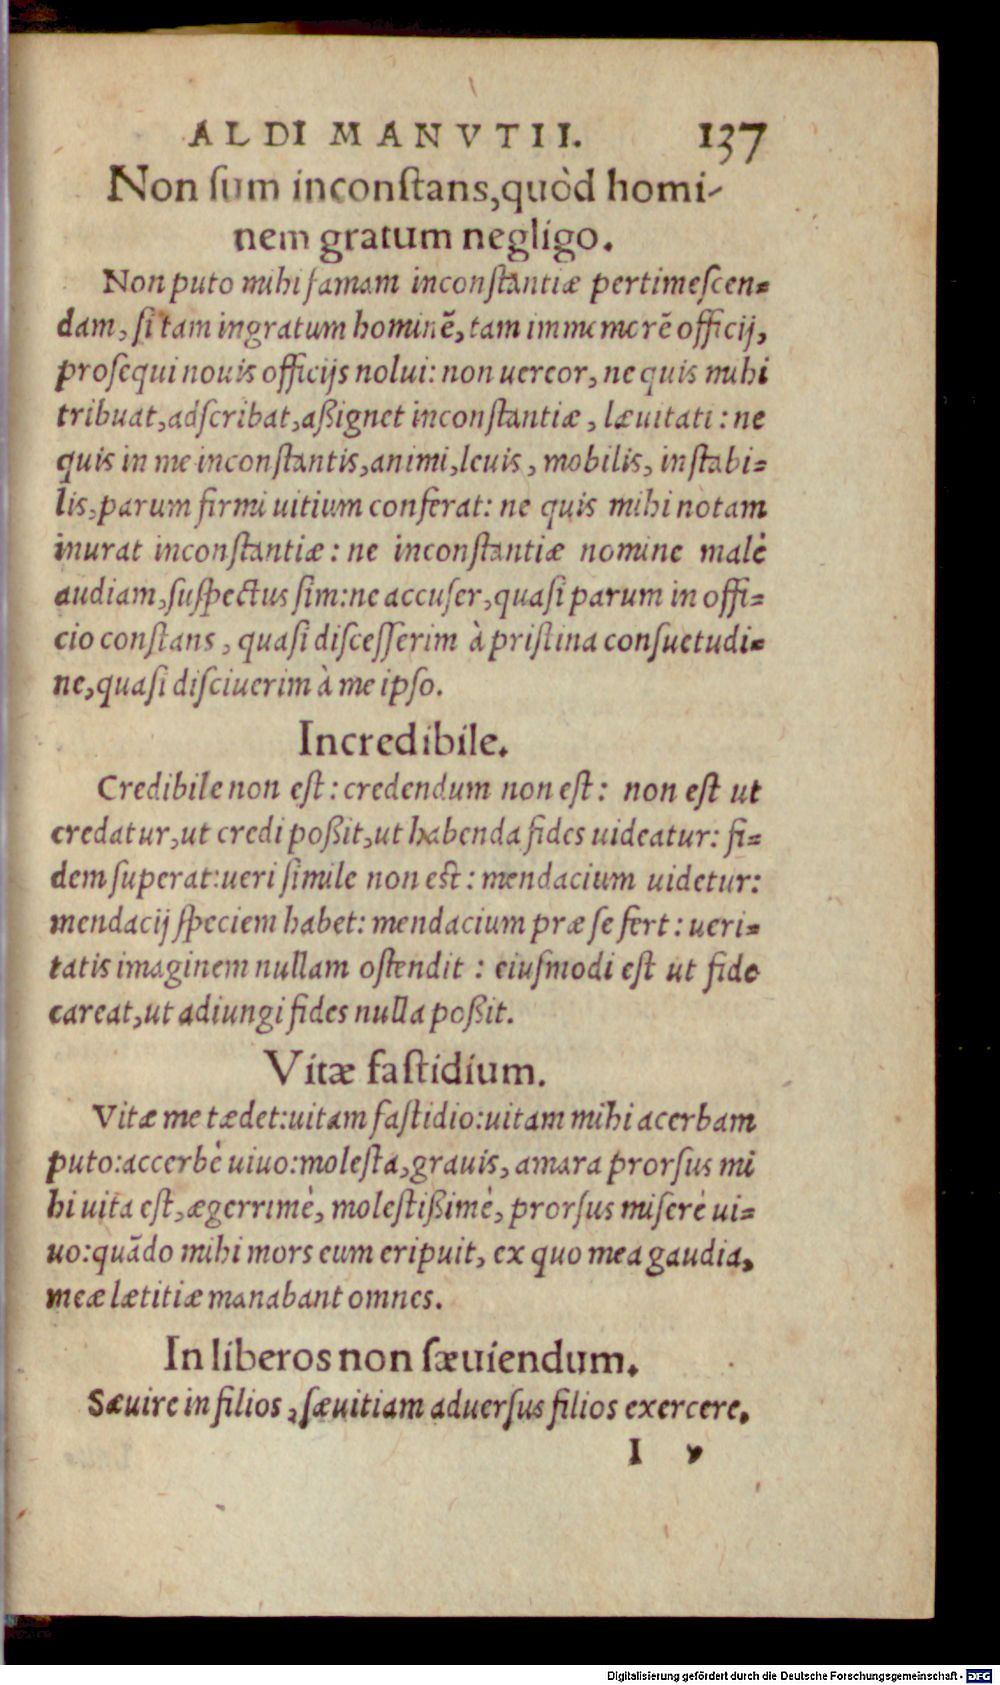 ALDI MANVTII. 137
Non ſum inconſtans,quòd homi-
nem gratum negligo.
Non puto mihi famam inconſtantiæ pertimeſcen=
dam, ſi tam ingratum hominē, tam immemorē officij,
proſequi nouis officijs nolui: non uereor, ne quis mihi
tribuat,adſcribat,aßignet inconſtantiæ, læuitati: ne
quis in me inconſtantis,animi,leuis, mobilis, inſtabi=
lis,parum firmi uitium conferat: ne quis mihi notam
inurat inconſtantiæ: ne inconſtantiæ nomine malè
audiam,ſuſpectus ſim:ne accuſer,quaſi parum in offi=
cio conſtans, quaſi diſceſſerim à priſtina conſuetudi=
ne,quaſi diſciuerim à me ipſo.
Incredibile.
Credibile non eſt: credendum non eſt: non eſt ut
credatur,ut credi poßit,ut habenda fides uideatur: fi=
dem ſuperat:ueri ſimile non est: mendacium uidetur:
mendacij ſpeciem habet: mendacium præ ſe fert: ueri=
tatis imaginem nullam oſtendit : eiuſmodi eſt ut fide
careat,ut adiungi fides nulla poßit.
Vitæ faſtidium.
Vitæ me tædet:uitam faſtidio:uitam mihi acerbam
puto:accerbè uiuo:moleſta,grauis, amara prorſus mi
hi uita eſt,ægerrimè, moleſtißimè, prorſus miſerè ui=
uo:quãdo mihi mors eum eripuit, ex quo mea gaudia,
meæ lætitiæ manabant omnes.
In liberos non ſæuiendum.
Sæuire in filios, ſæuitiam aduerſus filios exercere,
I v
Digitalisierung gefördert durch die Deutsche Forschungsgemeinschaft - DFG